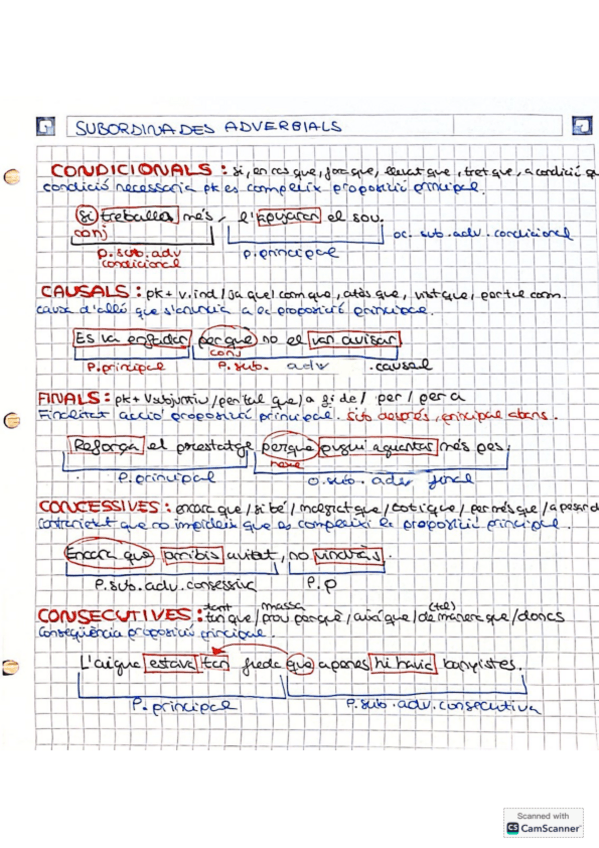 SUBORDINADES ADVERBIALS
CONDICIONALS: si, en cas que, posat que, llevat que, tret que, a condició que
condició necessaria pk es compleix proposició principal.
Si treballes més, l'apujaran el sou.
conj oc. sub. adv. condicional
p. sub. adv p. principal
condicional
CAUSALS: pk + v.ind / ja que / com que, atès que, vist que, per tal com.
causa d'allò que s'enuncia a la proposició principal.
Es va enfadar perquè no el van avisar
conj
P. principal P. sub. adv. causal
FINALS: pk + V subjuntiu / per tal que / a fi de / per / per a
Finalitat acció proposició principal. Sub després, principal abans.
Reforça el prestatge perque pugui aguantar més pes.
nexe
P. principal O. sub. adv final
CONCESSIVES: encara que / si bé / malgrat que / tot i que / per més que / a pesar d
contrarietat que no impedeix que es compleixi la proposició principal.
Encara que arribis aviat, no vindràs.
P. sub. adv. consessiva P. p
tant massa (tal)
CONSECUTIVES: tan que / prou perquè / així que / de manera que / doncs
Conseqüència proposició principal.
L'aigua estava tan freda que a penes hi havia banyistes.
P. principal P. sub. adv. consecutiva
Scanned with
CS CamScanner